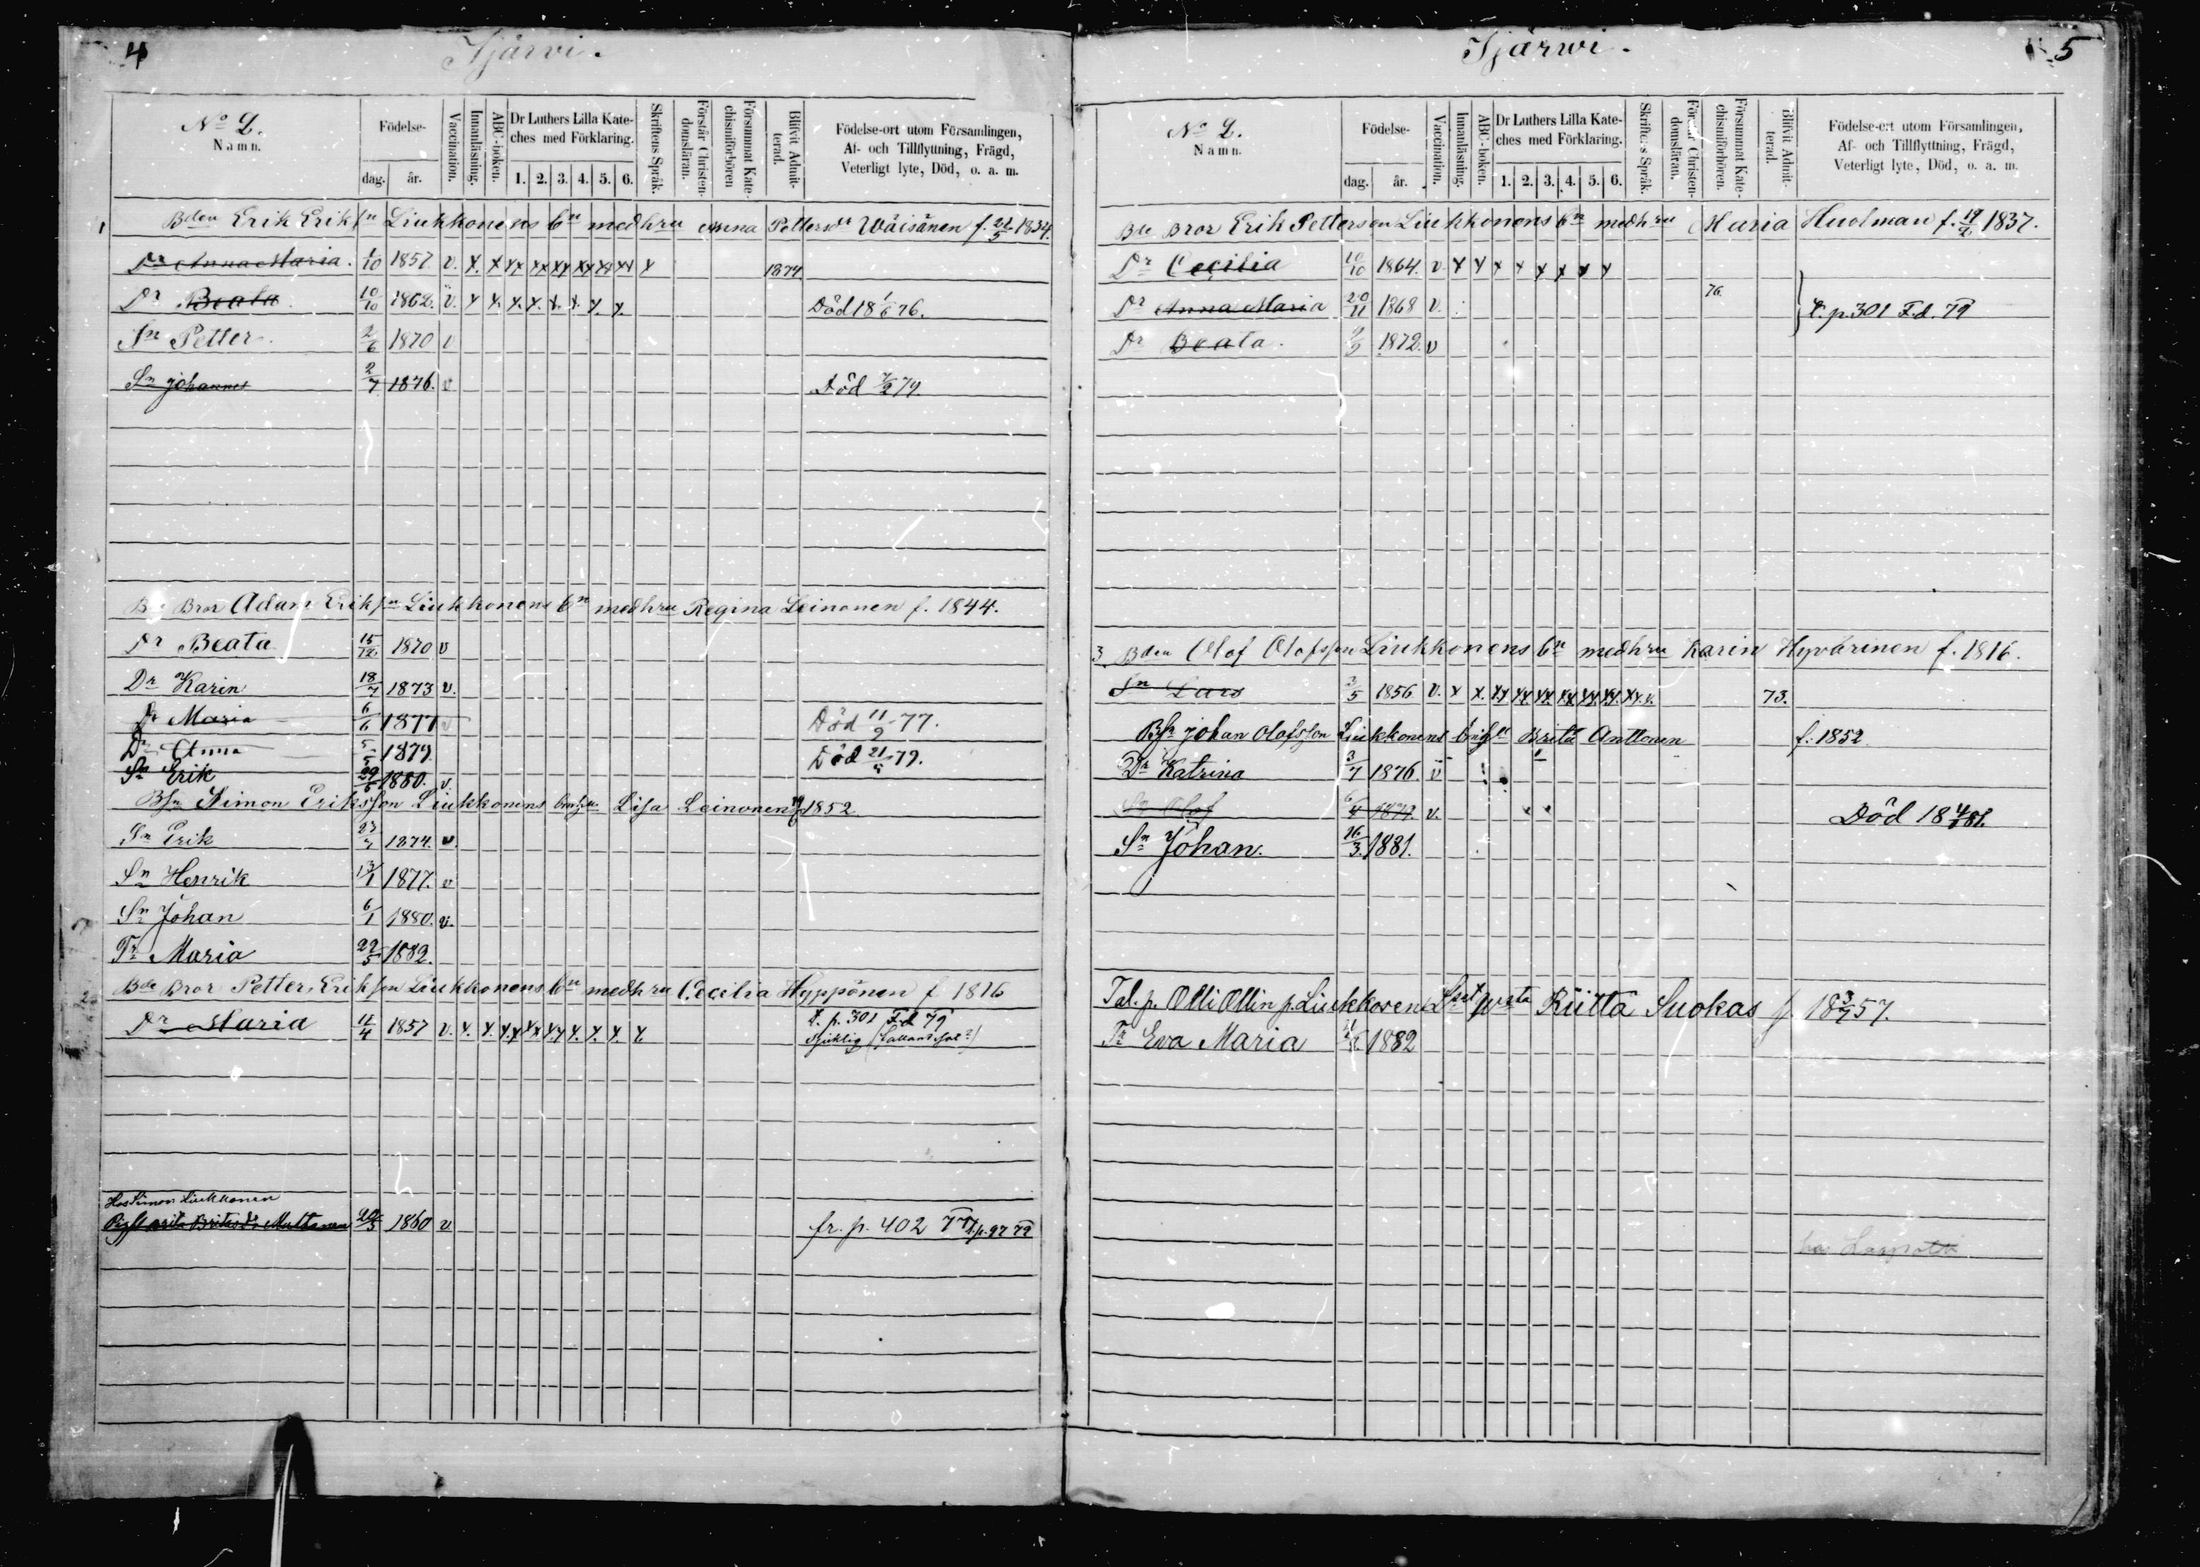 4
Ijärvi.
No 2.
Namn.
Födelse-
dag.
år.
Vaccination.
Innanläsning.
ABC-boken.
Dr Luthers Lilla Kate-
ches med Förklaring.
1. 2. 3. 4. 5. 6.
Skriftens Språk.
Förstår Christen-
domsläran.
Försummat Kate-
chismiförhören
Blifvit Admit-
terad.
Födelse-ort utom Församlingen,
Af- och Tillflyttning, Frägd,
Veterligt lyte, Död, o. a. m.
1 Bden Erik Eriksn Liukkonens bn medhru Anna Pettersdr Wäisänen f. 21/5 1834.
Dr Anna Maria. 1/10 1857 v. x. x xx xx xx xx xx xx x 1874
Dr Beata 10/10 1862. v. x x. x. x. x. x. x. x. Död 18 1/6 76.
Sn Petter. 2/6 1870 v
Sn Johannes 2/7 1876. v Död 7/2 79.
Bde Bror Adam Eriksn Liukkonens bn medhru Regina Leinonen f. 1844.
Dr Beata 15/12 1870 v
Dr Karin 18/7 1873 v.
Dr Maria 6/6 1877 v Död 11/9 77.
Dr Anna 5/5 1879. Död 21/5 79.
Sn Erik 29/6 1880. v.
Bsn Simon Eriksson Liukkonens Lisa Leinonen 1852
Sn Erik 23/7 1874. v
Sn Henrik 13/1 1877. v
Sn Johan 6/1 1880. v.
Tr Maria 22/5 1882.
2 Bde Bror Petter Eriksson Liukkonens bn medhru Cecilia Hyppönen f 1816
Dr Maria 11/4 1857 v. x. x. xx xx xx x. x. x. x. t. p. 301 F.d 79
Sjuklig
Hos Simon Liukkonen
Brita Multanen 1860 v fr. p. 402 77 t. p. 97 79
5
Ijärwi.
No 2.
Namn.
Födelse-
dag.
år.
Vaccination.
Innanläsning.
ABC-boken.
Dr Luthers Lilla Kate-
ches med Förklaring.
1. 2. 3. 4. 5. 6.
Skriftens Språk.
Förstår Christen-
domsläran.
Försummat Kate-
chismiförhören.
Blifvit Admit-
terad.
Födelse-ort utom Församlingen,
Af- och Tillflyttning, Frägd,
Veterligt lyte, Död, o. a. m.
Bde Bror Erik Petterson Liukkonens bn medhru Maria Huolman f. 1837.
Dr Cecilia 10/10 1864. v x x x x x x x x
Dr Anna Maria 20/11 1868 v. 76. t. p. 301 F.d. 79
Dr Beata. 1872. v
3 Bden Olof Olofsson Liukkonens bn medhru Karin Hyvärinen f. 1816.
Sn Lars 3/5 1856 v. x x. xx xx xx xx xx xx. xx. 73.
Bsn Johan Olofsson Liukkonens Brita Anttonen f. 1852
Dr Katrina 3/7 1876. v
Sn Olof 6/4 1879. v. Död 18 4/4 81.
Sn Johan. 16/3. 1881.
Tal. p. Olli Ollin p. Liukkonen Riitta Suokas f. 18 3/7 57.
Tr Eva Maria 1882